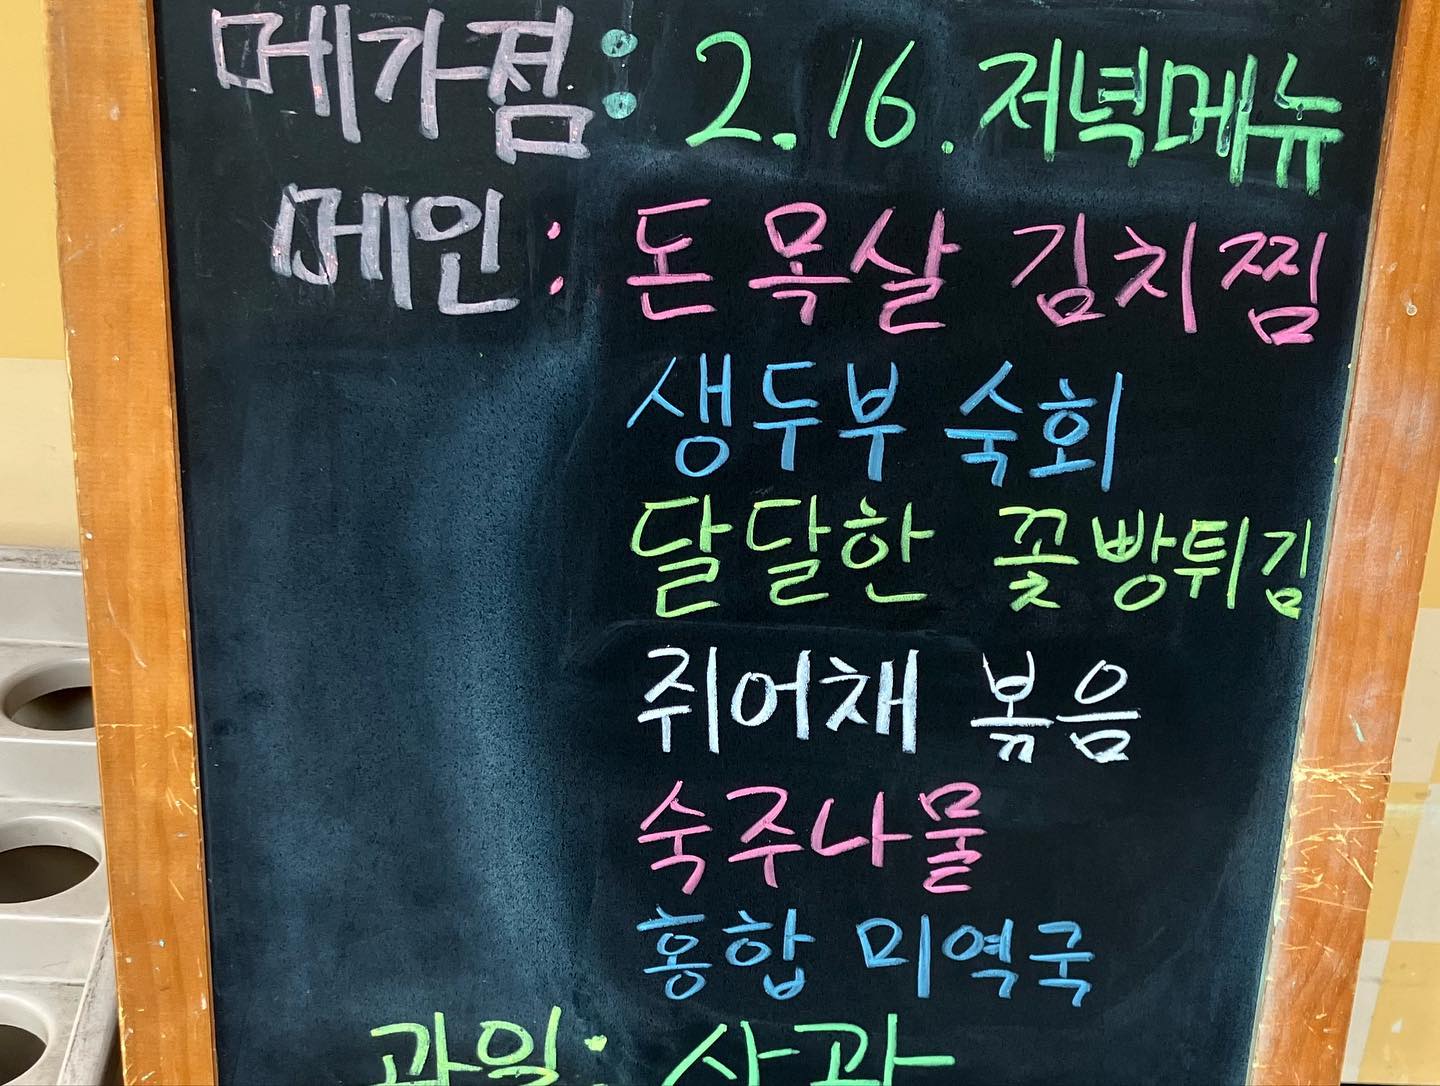 메가점: 2.16. 저녁메뉴
메인: 돈 목살 김치찜
생두부 숙회
달달한 꽃빵튀김
쥐어채 볶음
숙주나물
홍합 미역국
과일: 사과